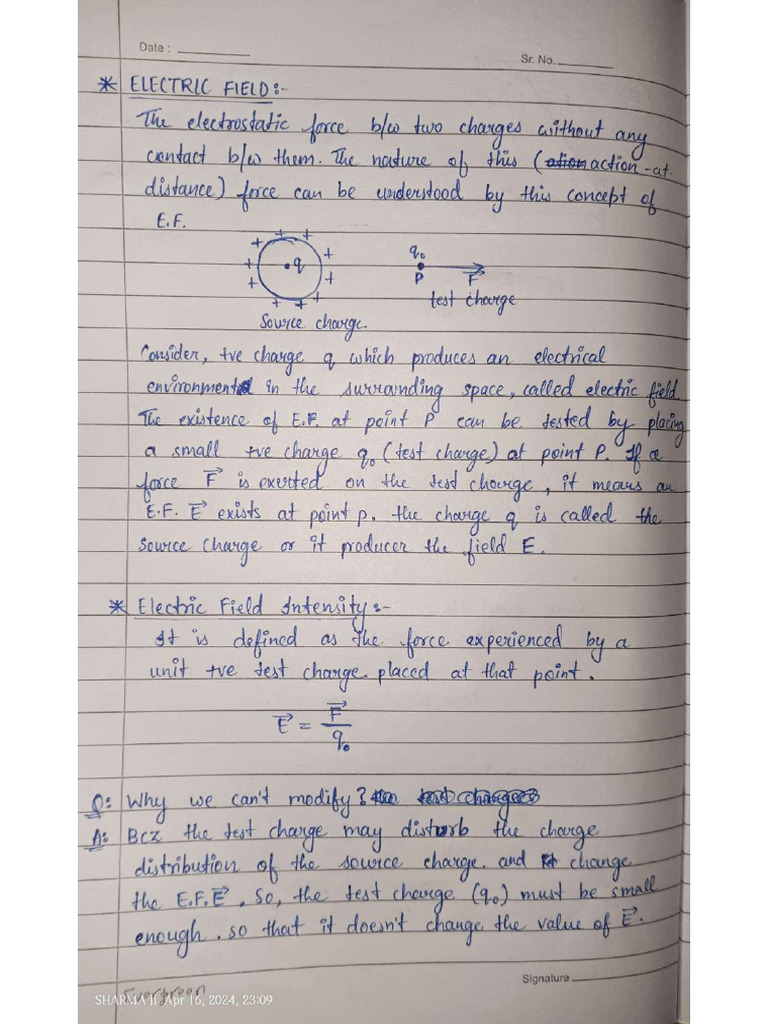 Date :
Sr. No.
* ELECTRIC FIELD:-
The electrostatic force b/w two charges without any
contact b/w them. The nature of this (action-at-
distance) force can be understood by this concept of
E.F.
+ + + + + + + + + +
q
q₀
P
F⃗
test charge
Source charge.
Consider, +ve charge q which produces an electrical
environment in the surrounding space, called electric field
The existence of E.F. at point P can be tested by placing
a small +ve charge q₀ (test charge) at point P. If a
force F⃗ is exerted on the test charge, it means an
E.F. E⃗ exists at point p. the charge q is called the
source charge or it producer the field E.
* Electric Field Intensity:-
It is defined as the force experienced by a
unit +ve test charge placed at that point.
E⃗ = F⃗/q₀
Q: Why we can't modify?
A: Bcz the test charge may disturb the charge
distribution of the source charge and change
the E.F. E⃗. So, the test charge (q₀) must be small
enough. so that it doesn't change the value of E⃗.
Signature
Evergreen
SHARMA || Apr 16, 2024, 23:09